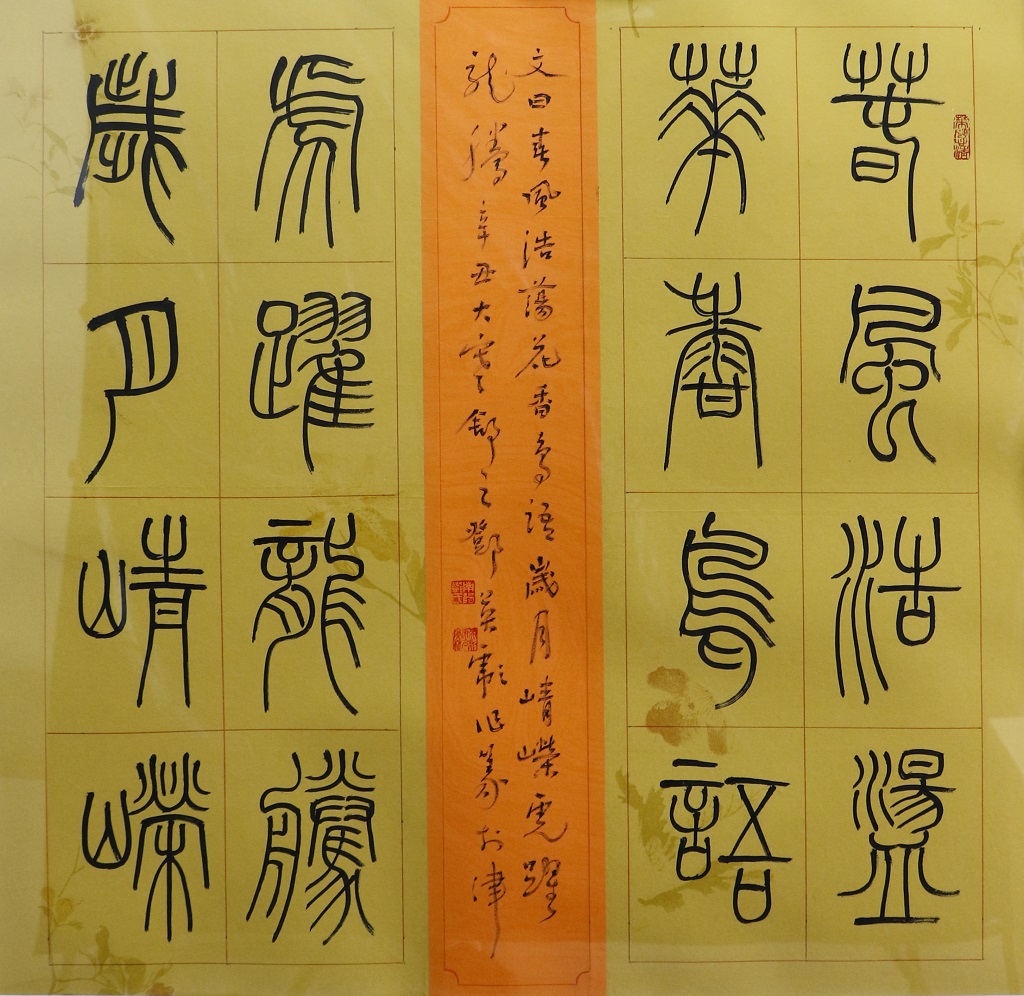 春風浩盪
華香鳥語
文曰春風浩蕩花香鳥語歲月崝嶸虎躍
龍騰辛丑大雪舒之鄧英作篆於津
虎躍龍騰
歲月崝嶸